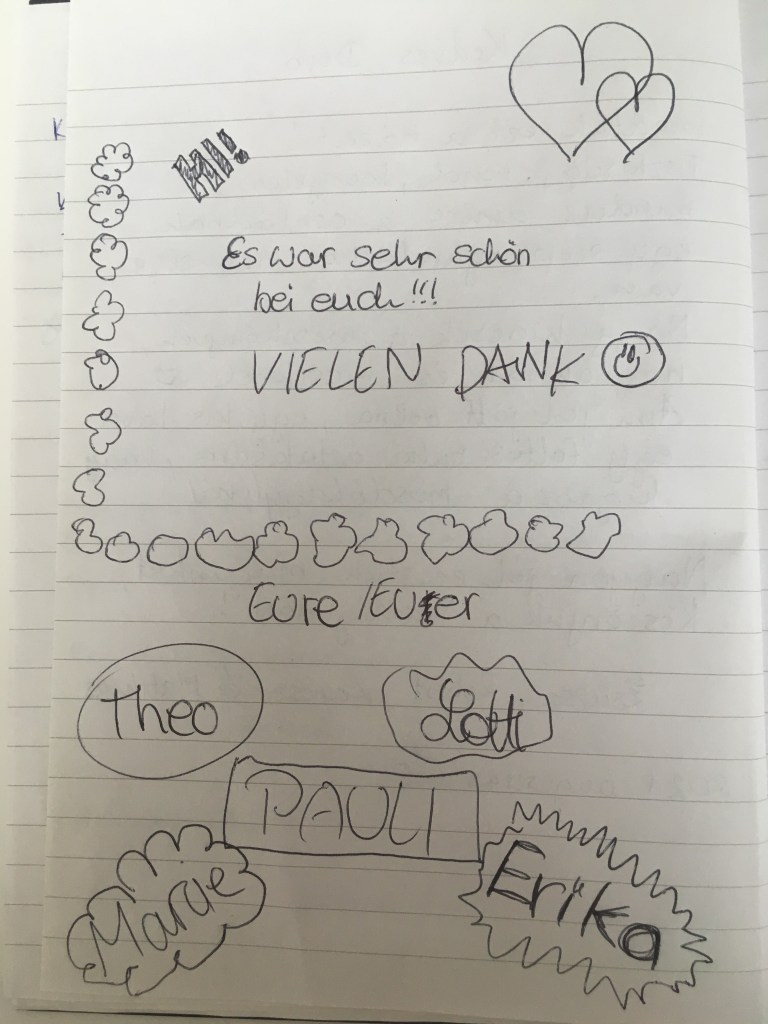 HI!
Es war sehr schön
bei euch!!!
VIELEN DANK
Eure /Eurer
Theo
Lotti
PAULI
Erika